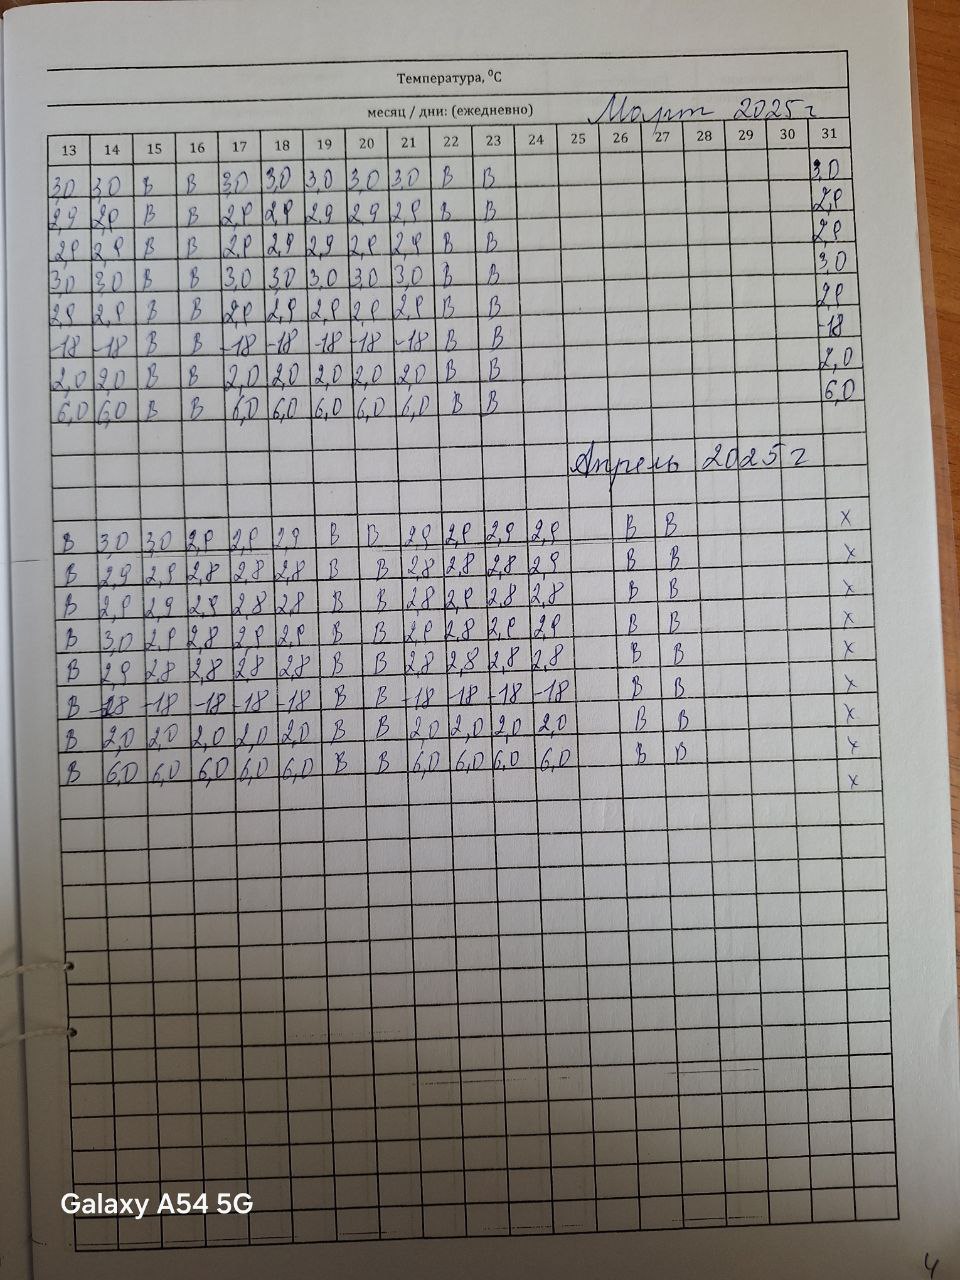 Температура, ⁰С
месяц / дни: (ежедневно) Март 2025 г
13 14 15 16 17 18 19 20 21 22 23 24 25 26 27 28 29 30 31
3,0 3,0 В В 3,0 3,0 3,0 3,0 3,0 В В 3,0
2,9 2,9 В В 2,9 2,9 2,9 2,9 2,9 В В 2,9
2,9 2,9 В В 2,9 2,9 2,9 2,9 2,9 В В 2,9
3,0 3,0 В В 3,0 3,0 3,0 3,0 3,0 В В 3,0
2,9 2,9 В В 2,9 2,9 2,9 2,9 2,9 В В 2,9
-18 -18 В В -18 -18 -18 -18 -18 В В -18
2,0 2,0 В В 2,0 2,0 2,0 2,0 2,0 В В 2,0
6,0 6,0 В В 6,0 6,0 6,0 6,0 6,0 В В 6,0
Апрель 2025 г
В 3,0 3,0 2,9 2,9 2,9 В В 2,9 2,9 2,9 2,9 В В х
В 2,9 2,9 2,8 2,8 2,8 В В 2,8 2,8 2,8 2,9 В В х
В 2,9 2,9 2,9 2,8 2,8 В В 2,8 2,9 2,8 2,8 В В х
В 3,0 2,9 2,8 2,9 2,9 В В 2,9 2,8 2,9 2,9 В В х
В 2,9 2,8 2,8 2,8 2,8 В В 2,8 2,8 2,8 2,8 В В х
В -18 -18 -18 -18 -18 В В -18 -18 -18 -18 В В х
В 2,0 2,0 2,0 2,0 2,0 В В 2,0 2,0 2,0 2,0 В В х
В 6,0 6,0 6,0 6,0 6,0 В В 6,0 6,0 6,0 6,0 В В х
х
Galaxy A54 5G
4